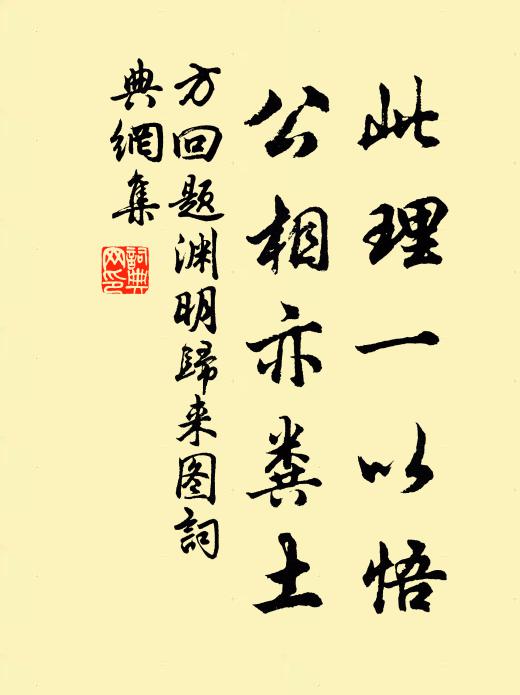 此理一以悟
公相亦粪土
方回题渊明歸来图詞
典網集
詞典网印